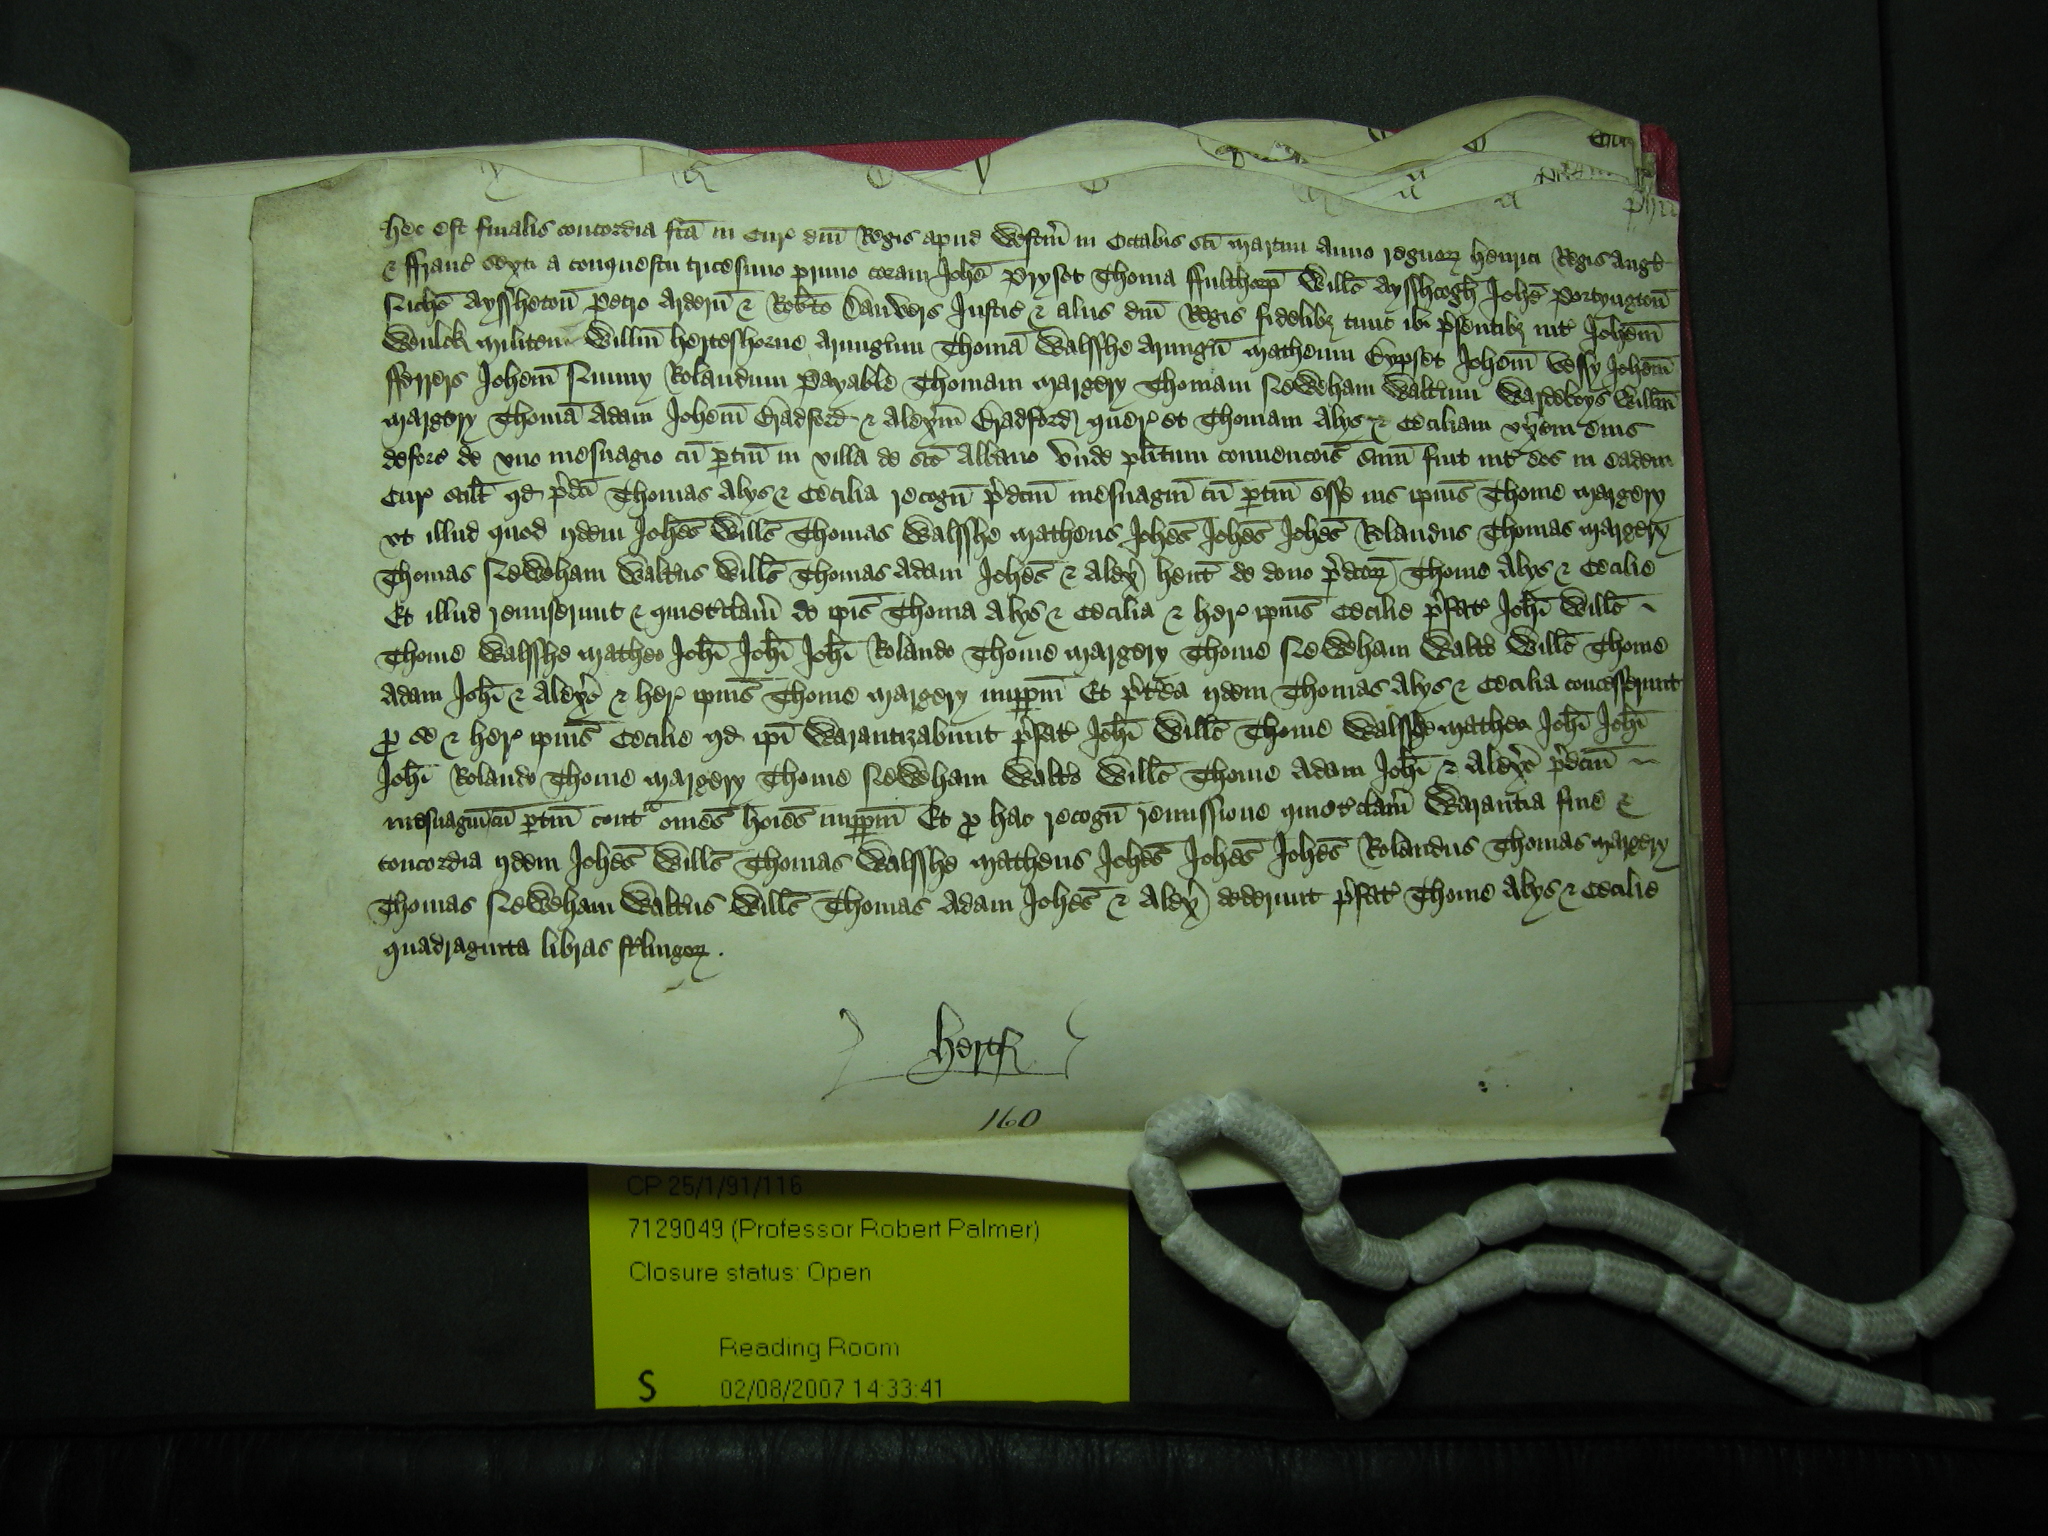 Hec est finalis concordia fca in Cur dni Regis apud Westm in Octabis sci Martini anno regnorz Henrici Regis Angl
& ffranc sexti a conquestu tricesimo primo coram Johe Prysot Thoma ffulthorp Willo Aysshcogh Johe Portyngton
Nicho Ayssheton Petro Ardern & Robto Danvers Justic & aliis dni Regis fidelibz tunc ibi psentibz int Johem
Wenlok militem Willm Herteshorne Armigum Thoma Walsshe Armigum Matheum Gypset Johem Vessy Johem
fferrers Johem Nunny Rolandum Payable Thomam Margery Thomam Neweham Waltum Wardeboys Willm
Margery Thoma Adam Johem Bradford & Alexm Bradford quer et Thomam Alys & Ceciliam uxem eius
deforc de uno mesuagio cu ptin in villa de sco Albano unde plitum convencois sum fuit int eos in eadem
Cur scilt qd pdci Thomas Alys & Cecilia recogn pdcm mesuagiu cu ptin esse ius ipius Thome Margery
ut illud quod iidem Johes Wills Thomas Walsshe Matheus Johes Johes Johes Rolandus Thomas Margery
Thomas Neweham Waltus Wills Thomas Adam Johes & Alex hent de dono pdcorz Thome Alys & Cecilie
Et illud remiserunt & quietclam de ipis Thoma Alys & Cecilia & her ipius Cecilie pfat Johi Willo
Thome Walsshe Matheo Johi Johi Johi Rolando Thome Margery Thome Neweham Walto Willo Thome
Adam Johi & Alexo & her ipius Thome Margery imppm Et ptea iidem Thomas Alys & Cecilia concesserunt
p se & her ipius Cecilie qd ipi Warantizabunt pfat Johi Willo Thome Walsshe Matheo Johi Johi
Johi Rolando Thome Margery Thome Neweham Walto Willo Thome Adam Johi & Alexo pdcm
mesuagiu cu ptin cont omes hoies imppm Et p hac recogn remissione quietclam Warantia fine &
concordia iidem Johes Wills Thomas Walsshe Matheus Johes Johes Johes Rolandus Thomas Margery
Thomas Neweham Waltus Wills Thomas Adam Johes & Alex dederunt pfat Thome Alys & Cecilie
quadraginta libras stlingorz .
Hertf
160
CP 25/1/91/116
7129049 (Professor Robert Palmer)
Closure status: Open
Reading Room
S 02/08/2007 14:33:41